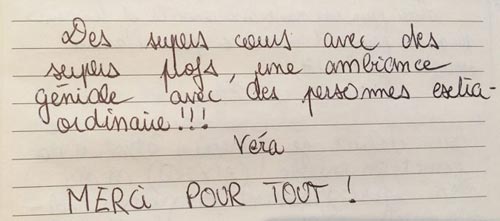 Des supers cours avec des
supers profs, une ambiance
géniale avec des personnes extra-
ordinaire!!!
Véra
MERCi POUR TOUT !